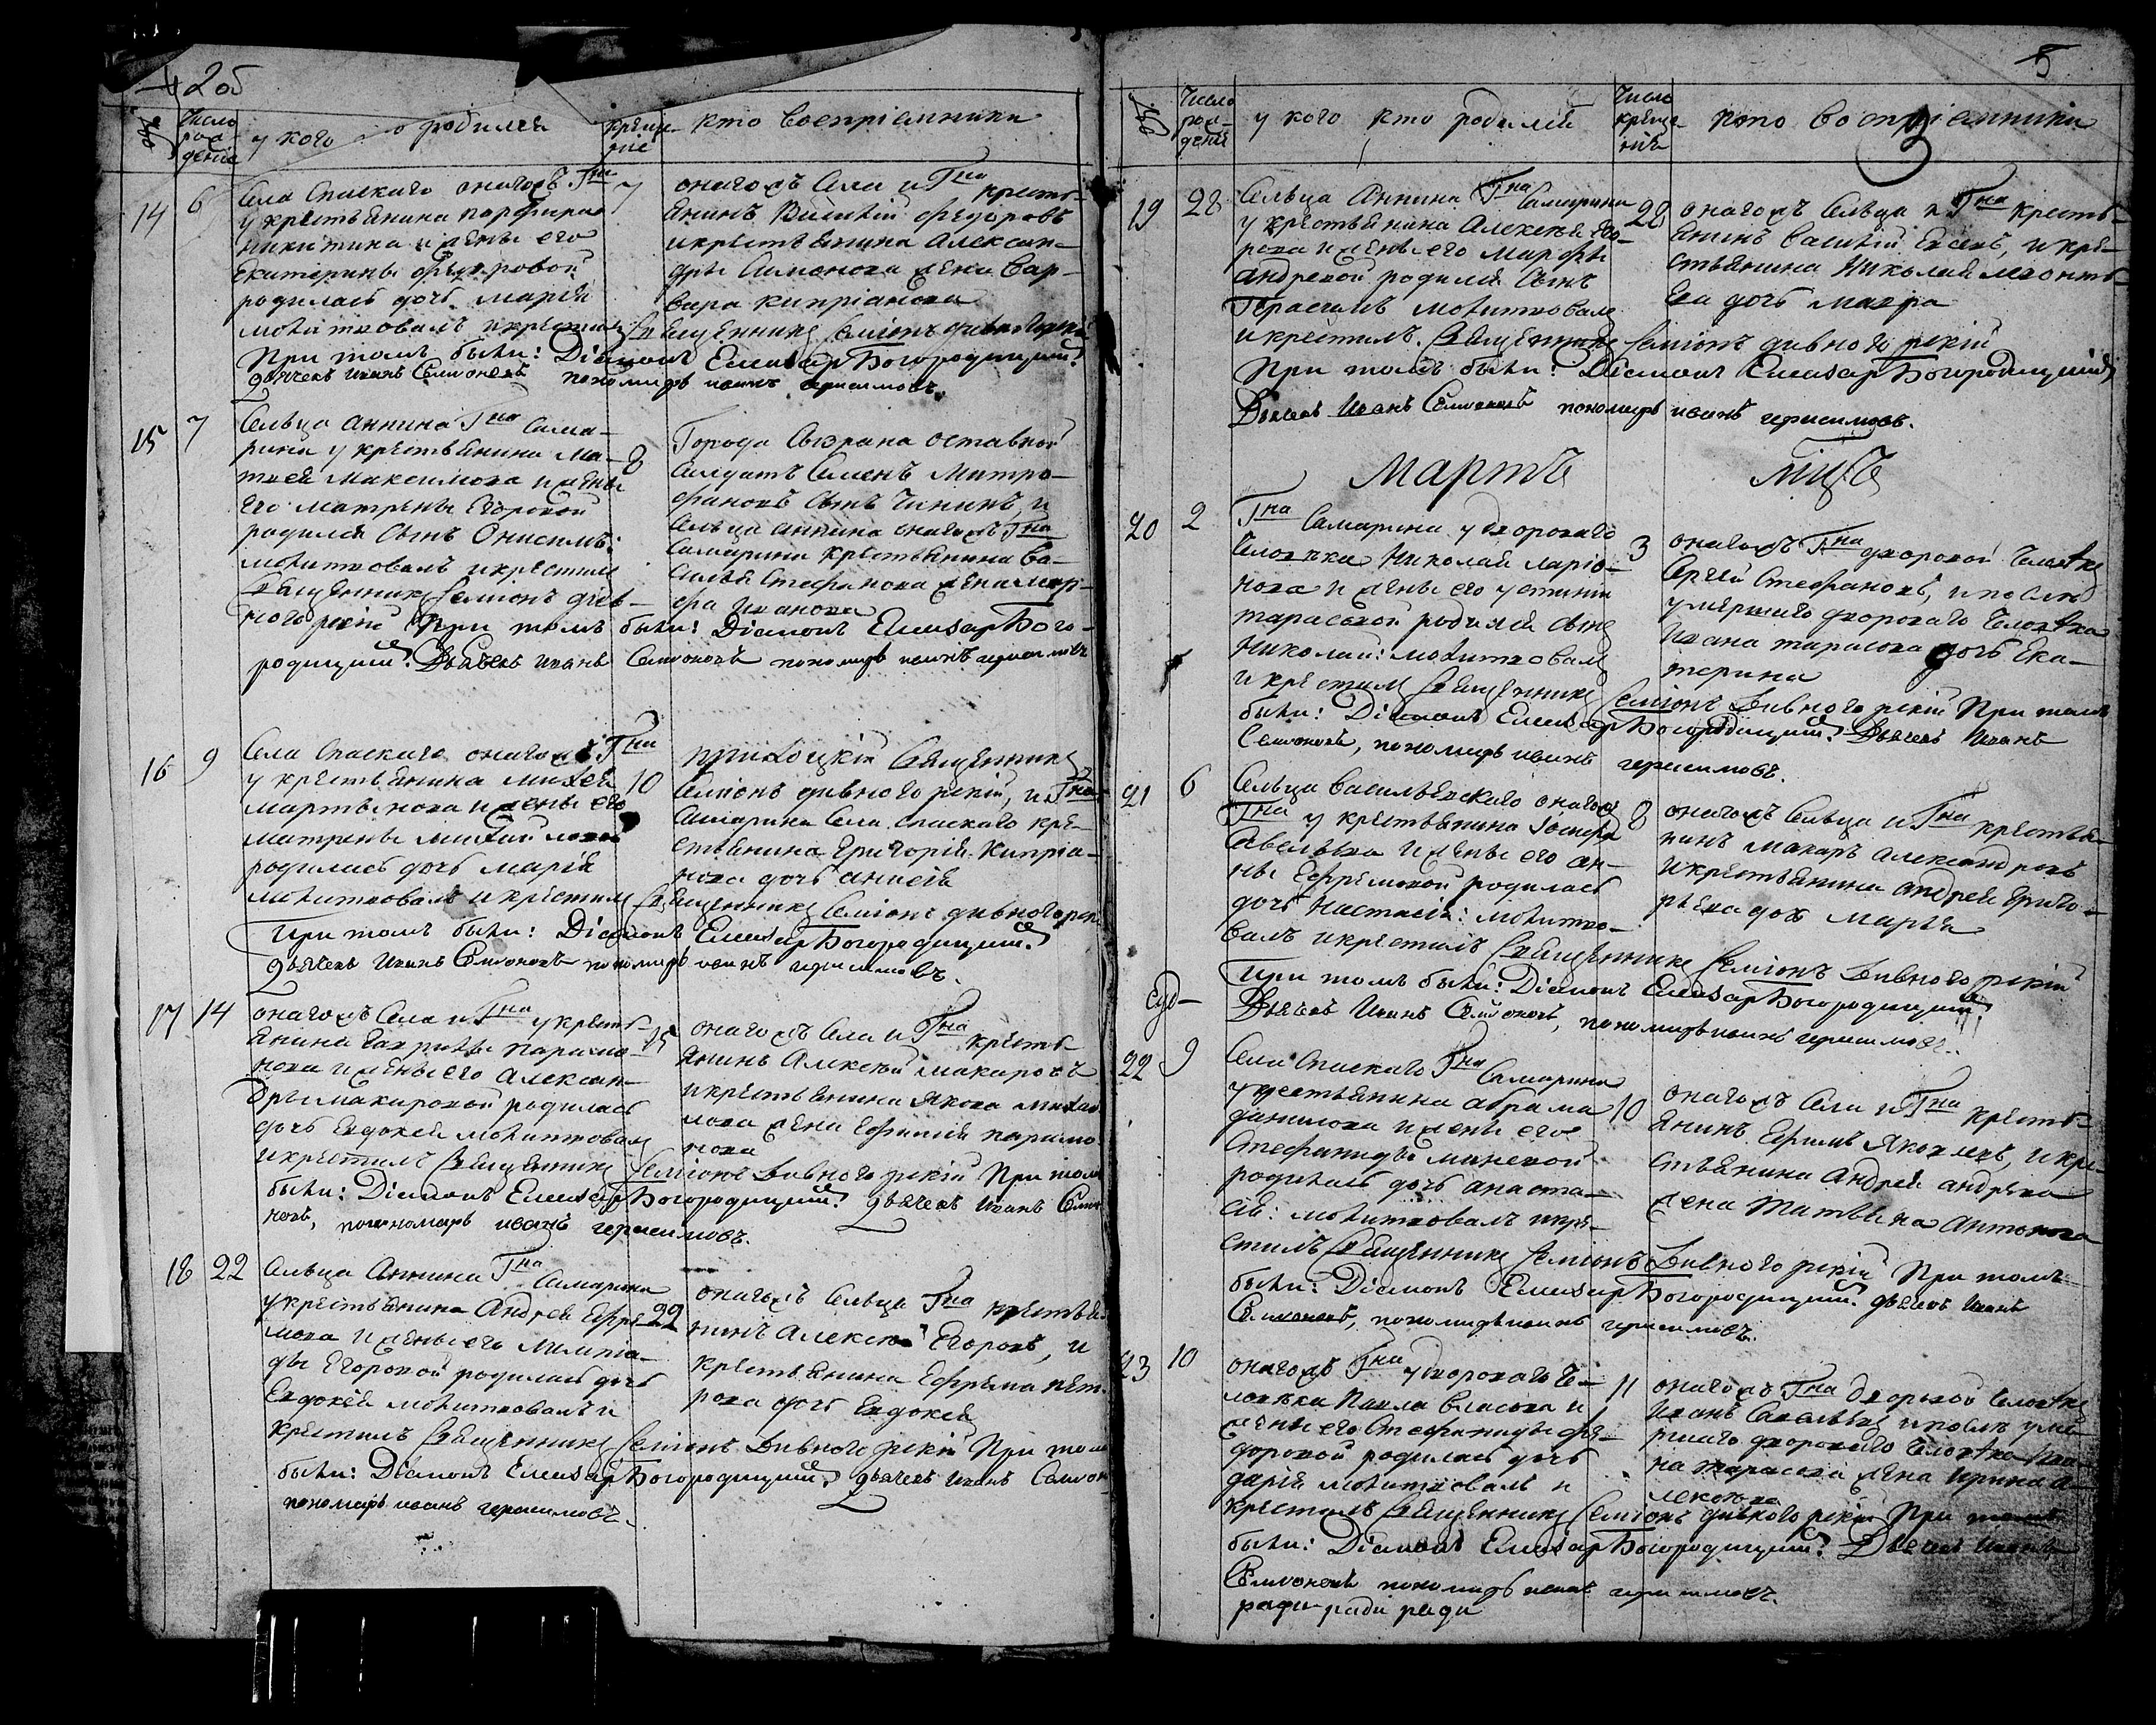 2об
Число рождения
у кого родился
крещение
кто восприемники
14 6 7
Села Спаскаго онагожъ Гна
у крестьянина парфира
никитина и жены его
Екатерины
родилась дочь мария
молитвовалъ и крестилъ Священникъ Семионъ дивногорскій
При томъ были: Діаконъ Елиазаръ Богородицкий
дьячекъ иванъ Семионовъ пономарь иванъ герасимовъ.
онагожъ Села и Гна кресть-
янинъ Василий Федоровъ
и крестьянина Алексан-
дры Симонова жена Вар-
вара киприанова
15 7 8
Сельца аннина Гна Сама-
рина у крестьянина Ма-
твея Максимова и жены
его матрены Егоровой
родился сынъ Онисимъ:
молитвовалъ и крестилъ
Священникъ Семионъ див-
ногорскій При томъ были: Діаконъ Елиазаръ Бого-
родицкий. Дьячекъ иванъ Семионовъ пономарь иванъ герасимовъ
Города Сызрана отставной
Солдатъ Семенъ Митро-
фановъ сынъ Чининъ, и
Сельца аннина онагожъ Гна
Самарина крестьянина Ва-
силья Стефанова жена мар-
фа иванова
16 9 10
Села Спаскаго онагожъ Гна
у крестьянина михея
мартынова и жены его
матрены михайловой
родилась дочь марія
молитвовалъ и крестилъ Священникъ Семионъ дивногорск
При томъ были: Діаконъ Елиазаръ Богородицкий.
дьячекъ иванъ Семионовъ пономарь иванъ герасимовъ.
приходскій Священникъ
Семионъ дивногорскій, и Гна
Самарина Села Спаскаго кре-
стьянина григорія Кипріа-
нова дочь анисія
17 14 15
онагожъ Села и Гна у кресть-
янина гаврилы парамо-
нова и жены его Алексан-
дры макаровой родилась
дочь Евдокея молитвовалъ
и крестилъ Священникъ Семионъ Дивногорскій При томъ
были: Діаконъ Елиазаръ Богородицкий. дьячекъ иванъ Семио
новъ, пономарь иванъ герасимовъ.
онагожъ Села и Гна кресть-
янинъ Алексѣй макаровъ
и крестьянина якова михай
лова жена Ефимія парамо
нова
18 22 22
Сельца Аннина Гна Самарина
у крестьянина Андрея Ефре-
мова и жены его Лимпіа-
ды Егоровой родилась дочь
Евдокея молитвовалъ и
крестилъ Священникъ Семионъ Дивногорскій При томъ
были: Діаконъ Елиазаръ Богородицкий. дьячекъ иванъ Семион
пономарь иванъ герасимовъ.
онагожъ Сельца Гна крестья-
нинъ Алексѣй Егоровъ, и
крестьянина Ефрема пет-
рова дочь Евдокея
5
Число рождения
у кого кто родился
Число крещения
кто восприемники
19 28 28
Сельца Аннина Гна Самарина
у крестьянина Алексѣя его-
рова и жены его Марфы
андреевой родился сынъ
Герасимъ молитвовалъ
и крестилъ. Священникъ Семионъ дивногорскій
При томъ были: Діаконъ Елиазаръ Богородицкий
Дьячекъ иванъ Семионовъ пономарь иванъ герасимовъ.
онагожъ Сельца и Гна кресть-
янинъ Василій, и кре-
стьянина Николая леонть-
ева дочь мавра
Мартъ мцъ
20 2 3
Гна Самарина у двороваго
человѣка Николая ларіо-
нова и жены его устинии
тарасовой родился сынъ
Николай: молитвовалъ
и крестилъ Священникъ Семионъ Дивногорскій При томъ
были: Діаконъ Елиазаръ Богородицкий. Дьячекъ иванъ
Семионовъ, пономарь иванъ герасимовъ.
онагожъ Гна дворовой человѣкъ
Сергѣй Стефановъ, и послѣ
умершаго двороваго человѣка
ивана тарасова дочь Ека-
терина
21 6 8
Сельца васильевскаго онагожъ
Гна у крестьянина Іосифа
Савельева и жены его ан-
ны Ефремовой родилась
дочь Настасія: молитво-
валъ и крестилъ Священникъ Семионъ Дивногорскій
При томъ были: Діаконъ Елиазаръ Богородицкий
Дьячекъ иванъ Семионовъ, пономарь иванъ герасимовъ.
онагожъ Сельца и Гна крестья-
нинъ макаръ александровъ
и крестьянина андрея григо-
рьева дочь Марья
22 9 10
Села Спаскаго Гна Самарина
у крестьянина абрама
данилова и жены его
Стефаниды минеевой
родилась дочь анаста-
сія: молитвовалъ и кре-
стилъ Священникъ Семионъ Дивногорскій При томъ
были: Діаконъ Елиазаръ Богородицкий. дьячекъ иванъ
Семионовъ, пономарь иванъ герасимовъ.
онагожъ Села и Гна кресть-
янинъ Ефимъ Яковлевъ, и кре-
стьянина Андрея андреева
жена Татьяна Антонова
23 10 11
онагожъ Гна у двороваго че-
ловѣка Павла власова и
жены его Стефаниды фе-
доровой родилась дочь
дарья молитвовалъ и
крестилъ Священникъ Семионъ дивногорскій При томъ
были: Діаконъ Елиазаръ Богородицкий. Дьячекъ иванъ
Семионовъ пономарь иванъ герасимовъ.
ради ради ради
онагожъ Гна дворовой человѣкъ
иванъ Савельевъ и послѣ уме-
ршаго двороваго человѣка ива-
на тарасова жена ирина а-
лексѣева